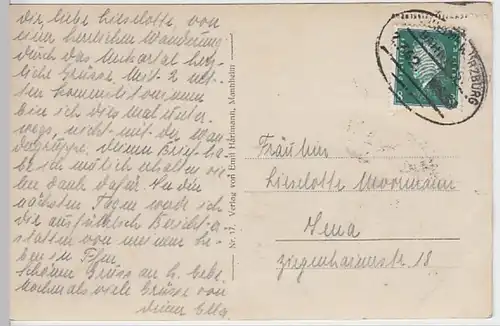 Dir, liebe Lieselotte, von
einer herrlichen Wanderung
durch das Neckartal herz-
liche Grüsse. Mit 2 net-
ten Kommilitonninnen
bin ich diesmal unter-
wegs, nicht mit der Wan-
dergruppe. Deinen Brief ha-
be ich nämlich erhalten vie-
len Dank dafür. An den
nächsten Tagen werde ich
Dir ausführlich Bericht er-
statten von meinem Le-
ben in
Schöner Gruss an H.
Nochmals viele Grüsse von
Deiner Ella
Nr. 17. Verlag von Emil Hartmann, Mannheim
WÜRZBURG
Fräulein
Lieselotte Moormann
Jena
Ziegenhainerstr. 18